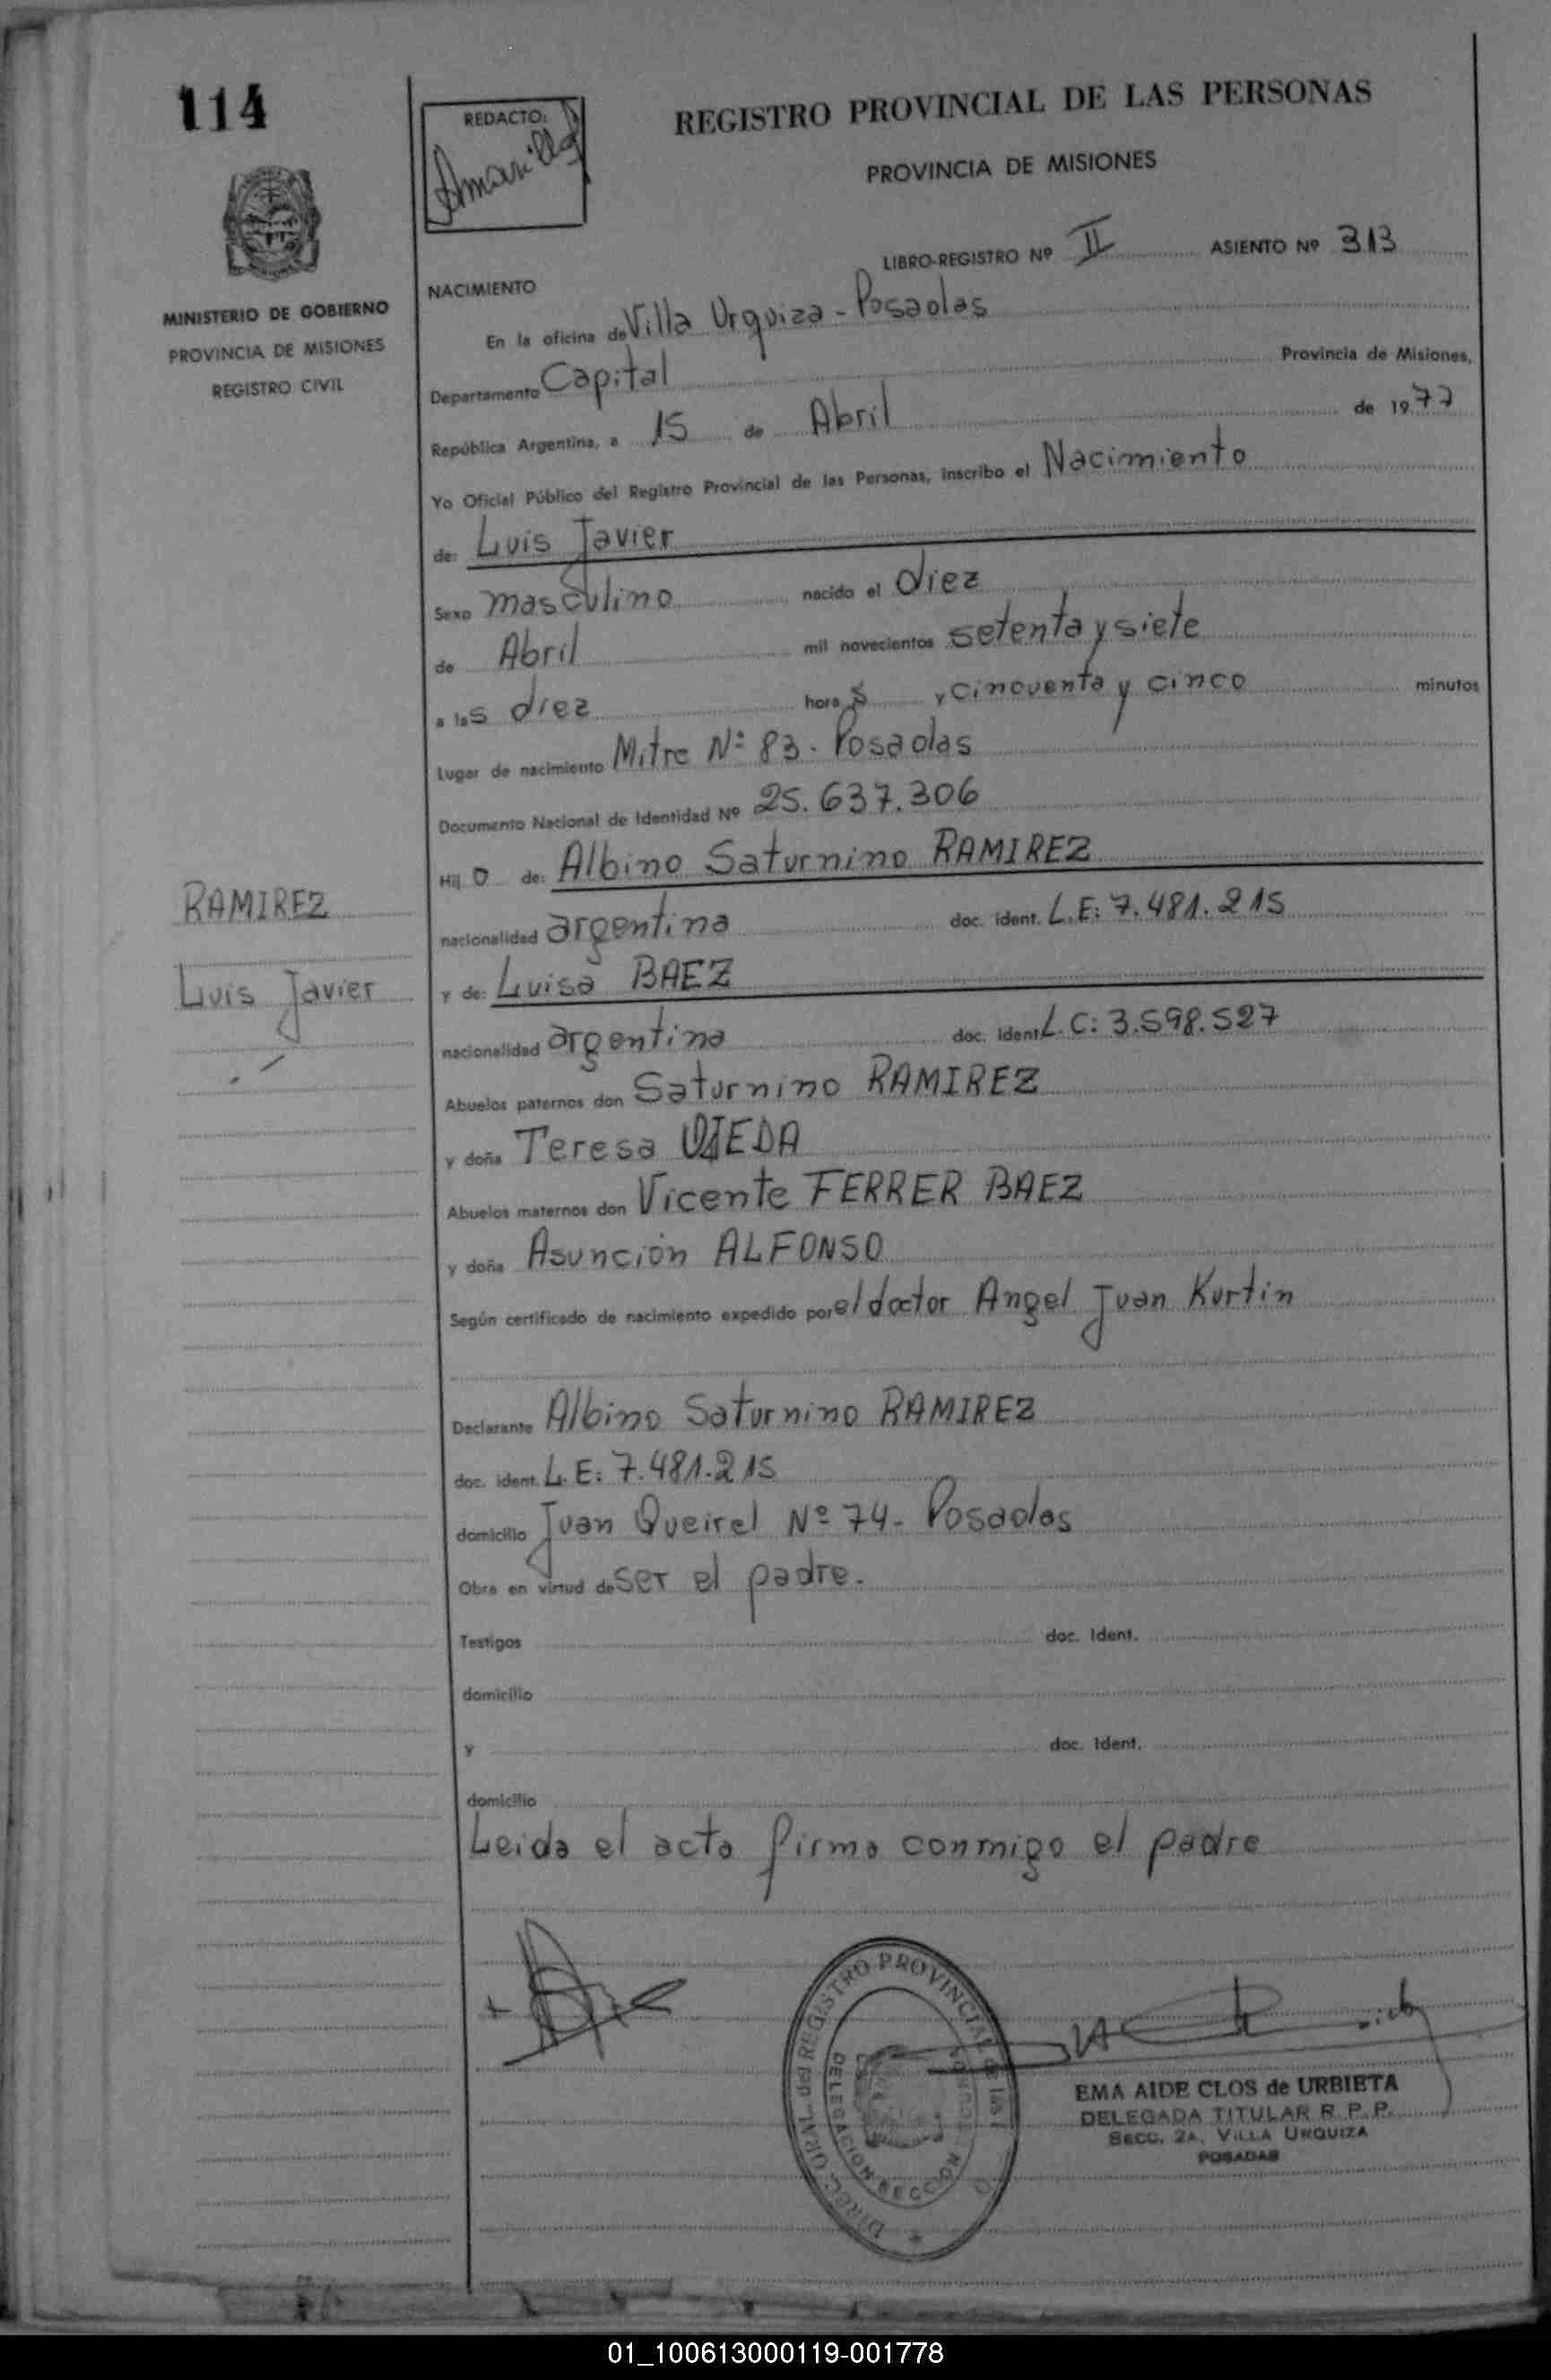 114
REDACTO:
Amarilla
REGISTRO PROVINCIAL DE LAS PERSONAS
PROVINCIA DE MISIONES
LIBRO-REGISTRO Nº II ASIENTO Nº 313
MINISTERIO DE GOBIERNO
PROVINCIA DE MISIONES
REGISTRO CIVIL
NACIMIENTO
En la oficina de Villa Urquiza - Posadas
Departamento Capital Provincia de Misiones,
República Argentina, a 15 de Abril de 1977
Yo Oficial Público del Registro Provincial de las Personas, inscribo el Nacimiento
de: Luis Javier
Sexo masculino nacido el diez
de Abril mil novecientos setenta y siete
a las diez horas y cincuenta y cinco minutos
Lugar de nacimiento Mitre Nº 83 - Posadas
Documento Nacional de Identidad Nº 25.637.306
Hijo de: Albino Saturnino RAMIREZ
RAMIREZ
nacionalidad argentina doc. ident. L.E: 7.481.215
Luis Javier
y de: Luisa BAEZ
nacionalidad argentina doc. ident. L.C: 3.598.527
Abuelos paternos don Saturnino RAMIREZ
y doña Teresa OJEDA
Abuelos maternos don Vicente FERRER BAEZ
y doña Asunción ALFONSO
Según certificado de nacimiento expedido por el doctor Angel Juan Kurtin
Declarante Albino Saturnino RAMIREZ
doc. ident. L.E: 7.481.215
domicilio Juan Queirel Nº 74 - Posadas
Obra en virtud de ser el padre.
Testigos doc. Ident.
domicilio
y doc. Ident.
domicilio
Leida el acta firma conmigo el padre
DIREC. GRAL. del REGISTRO PROVINCIAL de las
DELEGACION SECCION
EMA AIDE CLOS de URBIETA
DELEGADA TITULAR R. P. P.
SECC. 2A. VILLA URQUIZA
POSADAS
01_100613000119-001778